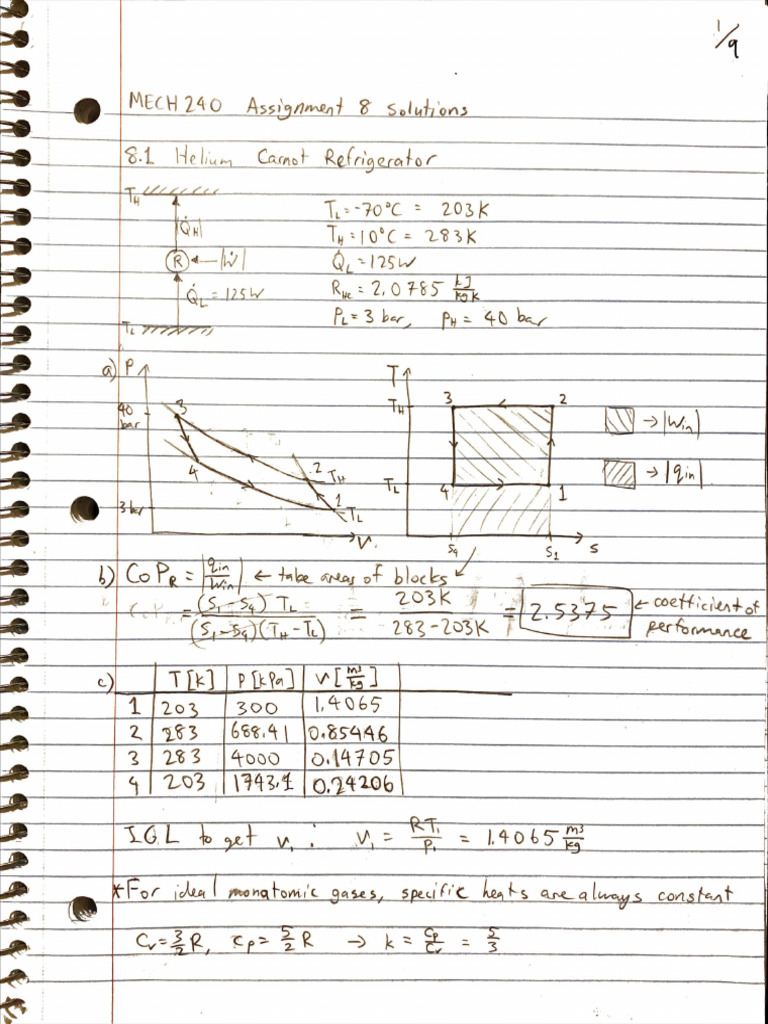 1/9
MECH 240 Assignment 8 Solutions
8.1 Helium Carnot Refrigerator
T_H
|Q̇_H|
R ← |Ẇ|
Q̇_L = 125W
T_L
T_L = -70°C = 203K
T_H = 10°C = 283K
Q̇_L = 125W
R_He = 2.0785 kJ/kgK
P_L = 3 bar, P_H = 40 bar
a) P
40 bar
3 bar
3
4
2
1
T_H
T_L
v
T
T_H
T_L
3
2
4
1
s_4
s_1
s
→ |w_in|
→ |q_in|
b) CoP_R = |q_in/w_in| ← take areas of blocks
= (s_1-s_4) T_L / (s_1-s_4)(T_H-T_L) = 203K / 283-203K = 2.5375 ← coefficient of performance
c) T[K] P[kPa] v[m³/kg]
1 203 300 1.4065
2 283 688.41 0.85446
3 283 4000 0.14705
4 203 1743.1 0.24206
I.G.L to get v_1: v_1 = RT_1/P_1 = 1.4065 m³/kg
*For ideal monatomic gases, specific heats are always constant
c_v = 3/2 R, c_p = 5/2 R → k = c_p/c_v = 5/3